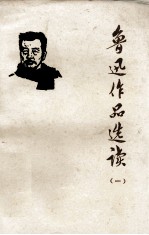 鲁迅作品选读
(一)